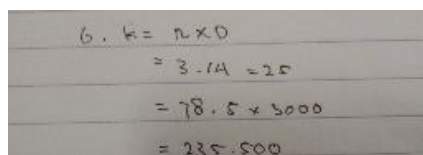 6. k = π × D
= 3.14 = 25
= 78.5 × 3000
= 235.500